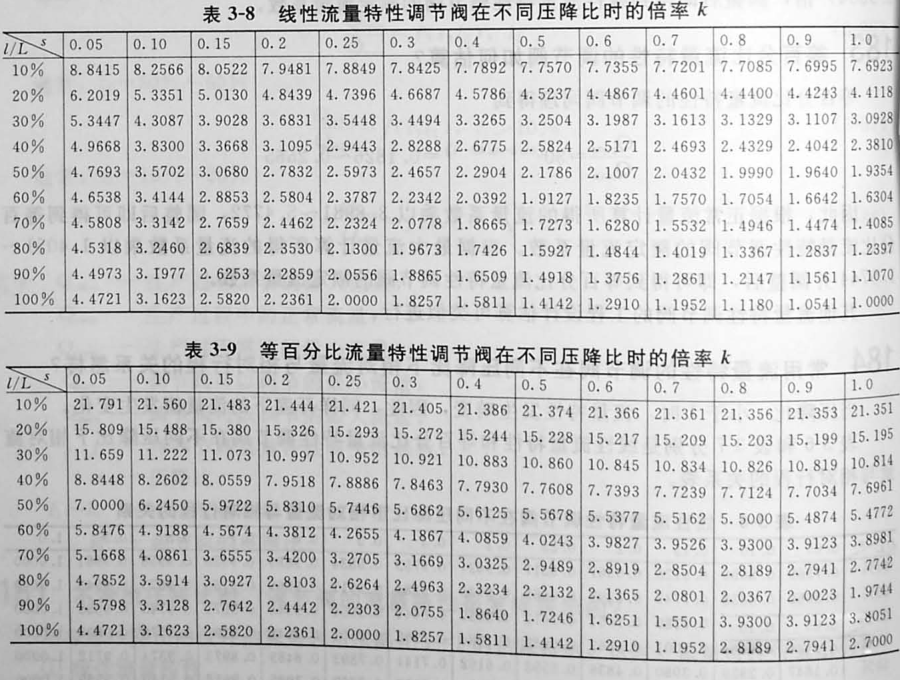 表 3-8 线性流量特性调节阀在不同压降比时的倍率 k
l/L s 0.05 0.10 0.15 0.2 0.25 0.3 0.4 0.5 0.6 0.7 0.8 0.9 1.0
10% 8.8415 8.2566 8.0522 7.9481 7.8849 7.8425 7.7892 7.7570 7.7355 7.7201 7.7085 7.6995 7.6923
20% 6.2019 5.3351 5.0130 4.8439 4.7396 4.6687 4.5786 4.5237 4.4867 4.4601 4.4400 4.4243 4.4118
30% 5.3447 4.3087 3.9028 3.6831 3.5448 3.4494 3.3265 3.2504 3.1987 3.1613 3.1329 3.1107 3.0928
40% 4.9668 3.8300 3.3668 3.1095 2.9443 2.8288 2.6775 2.5824 2.5171 2.4693 2.4329 2.4042 2.3810
50% 4.7693 3.5702 3.0680 2.7832 2.5973 2.4657 2.2904 2.1786 2.1007 2.0432 1.9990 1.9640 1.9354
60% 4.6538 3.4144 2.8853 2.5804 2.3787 2.2342 2.0392 1.9127 1.8235 1.7570 1.7054 1.6642 1.6304
70% 4.5808 3.3142 2.7658 2.4462 2.2324 2.0778 1.8665 1.7273 1.6280 1.5532 1.4946 1.4474 1.4085
80% 4.5318 3.2460 2.6839 2.3530 2.1300 1.9673 1.7426 1.5927 1.4844 1.4019 1.3367 1.2837 1.2397
90% 4.4973 3.1977 2.6253 2.2859 2.0556 1.8865 1.6509 1.4918 1.3756 1.2861 1.2147 1.1561 1.1070
100% 4.4721 3.1623 2.5820 2.2361 2.0000 1.8257 1.5811 1.4142 1.2910 1.1952 1.1180 1.0541 1.0000
表 3-9 等百分比流量特性调节阀在不同压降比时的倍率 k
l/L s 0.05 0.10 0.15 0.2 0.25 0.3 0.4 0.5 0.6 0.7 0.8 0.9 1.0
10% 21.791 21.560 21.483 21.444 21.421 21.405 21.386 21.374 21.366 21.361 21.356 21.353 21.351
20% 15.809 15.488 15.380 15.326 15.293 15.272 15.244 15.228 15.217 15.209 15.203 15.199 15.195
30% 11.659 11.222 11.073 10.997 10.952 10.921 10.883 10.860 10.845 10.834 10.826 10.819 10.814
40% 8.8448 8.2602 8.0559 7.9518 7.8886 7.8463 7.7930 7.7608 7.7393 7.7239 7.7124 7.7034 7.6961
50% 7.0000 6.2450 5.9722 5.8310 5.7446 5.6862 5.6125 5.5678 5.5377 5.5162 5.5000 5.4874 5.4772
60% 5.8476 4.9188 4.5674 4.3812 4.2655 4.1867 4.0859 4.0243 3.9827 3.9526 3.9300 3.9123 3.8981
70% 5.1668 4.0861 3.6555 3.4200 3.2705 3.1669 3.0325 2.9489 2.8919 2.8504 2.8189 2.7941 2.7742
80% 4.7852 3.5914 3.0927 2.8103 2.6264 2.4963 2.3234 2.2132 2.1365 2.0801 2.0367 2.0023 1.9744
90% 4.5798 3.3128 2.7642 2.4442 2.2303 2.0755 1.8640 1.7246 1.6251 1.5501 3.9300 3.9123 3.8051
100% 4.4721 3.1623 2.5820 2.2361 2.0000 1.8257 1.5811 1.4142 1.2910 1.1952 2.8189 2.7941 2.7000